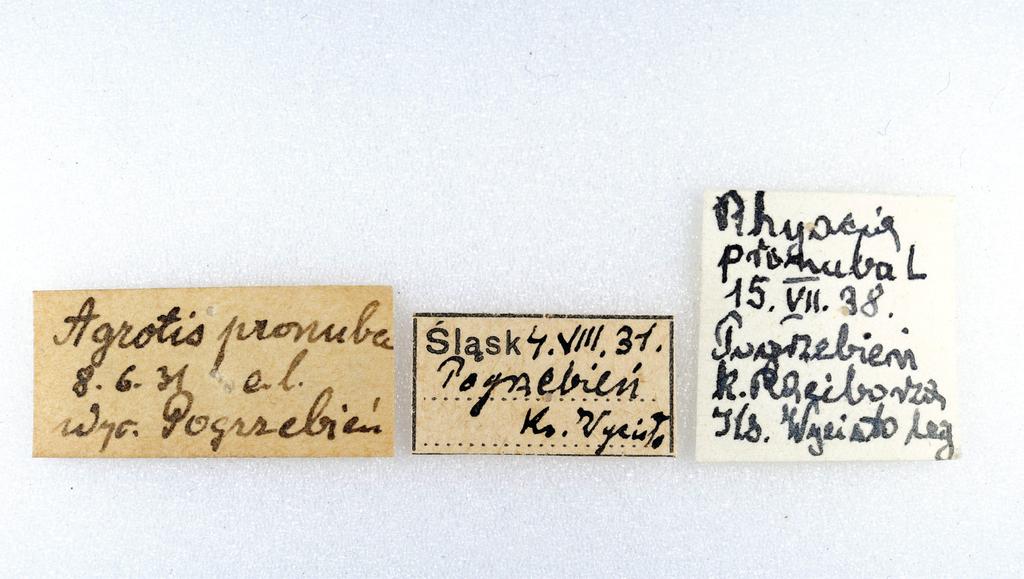 Agrotis pronuba
8.6.31 e.l.
Wyc. Pogrzebień
Śląsk 4.VIII.31.
Pogrzebień
Ks. Wycisło
Rhyacia
pronuba L
15.VII.38.
Pogrzebień
k. Raciborza
Ks. Wycisło leg